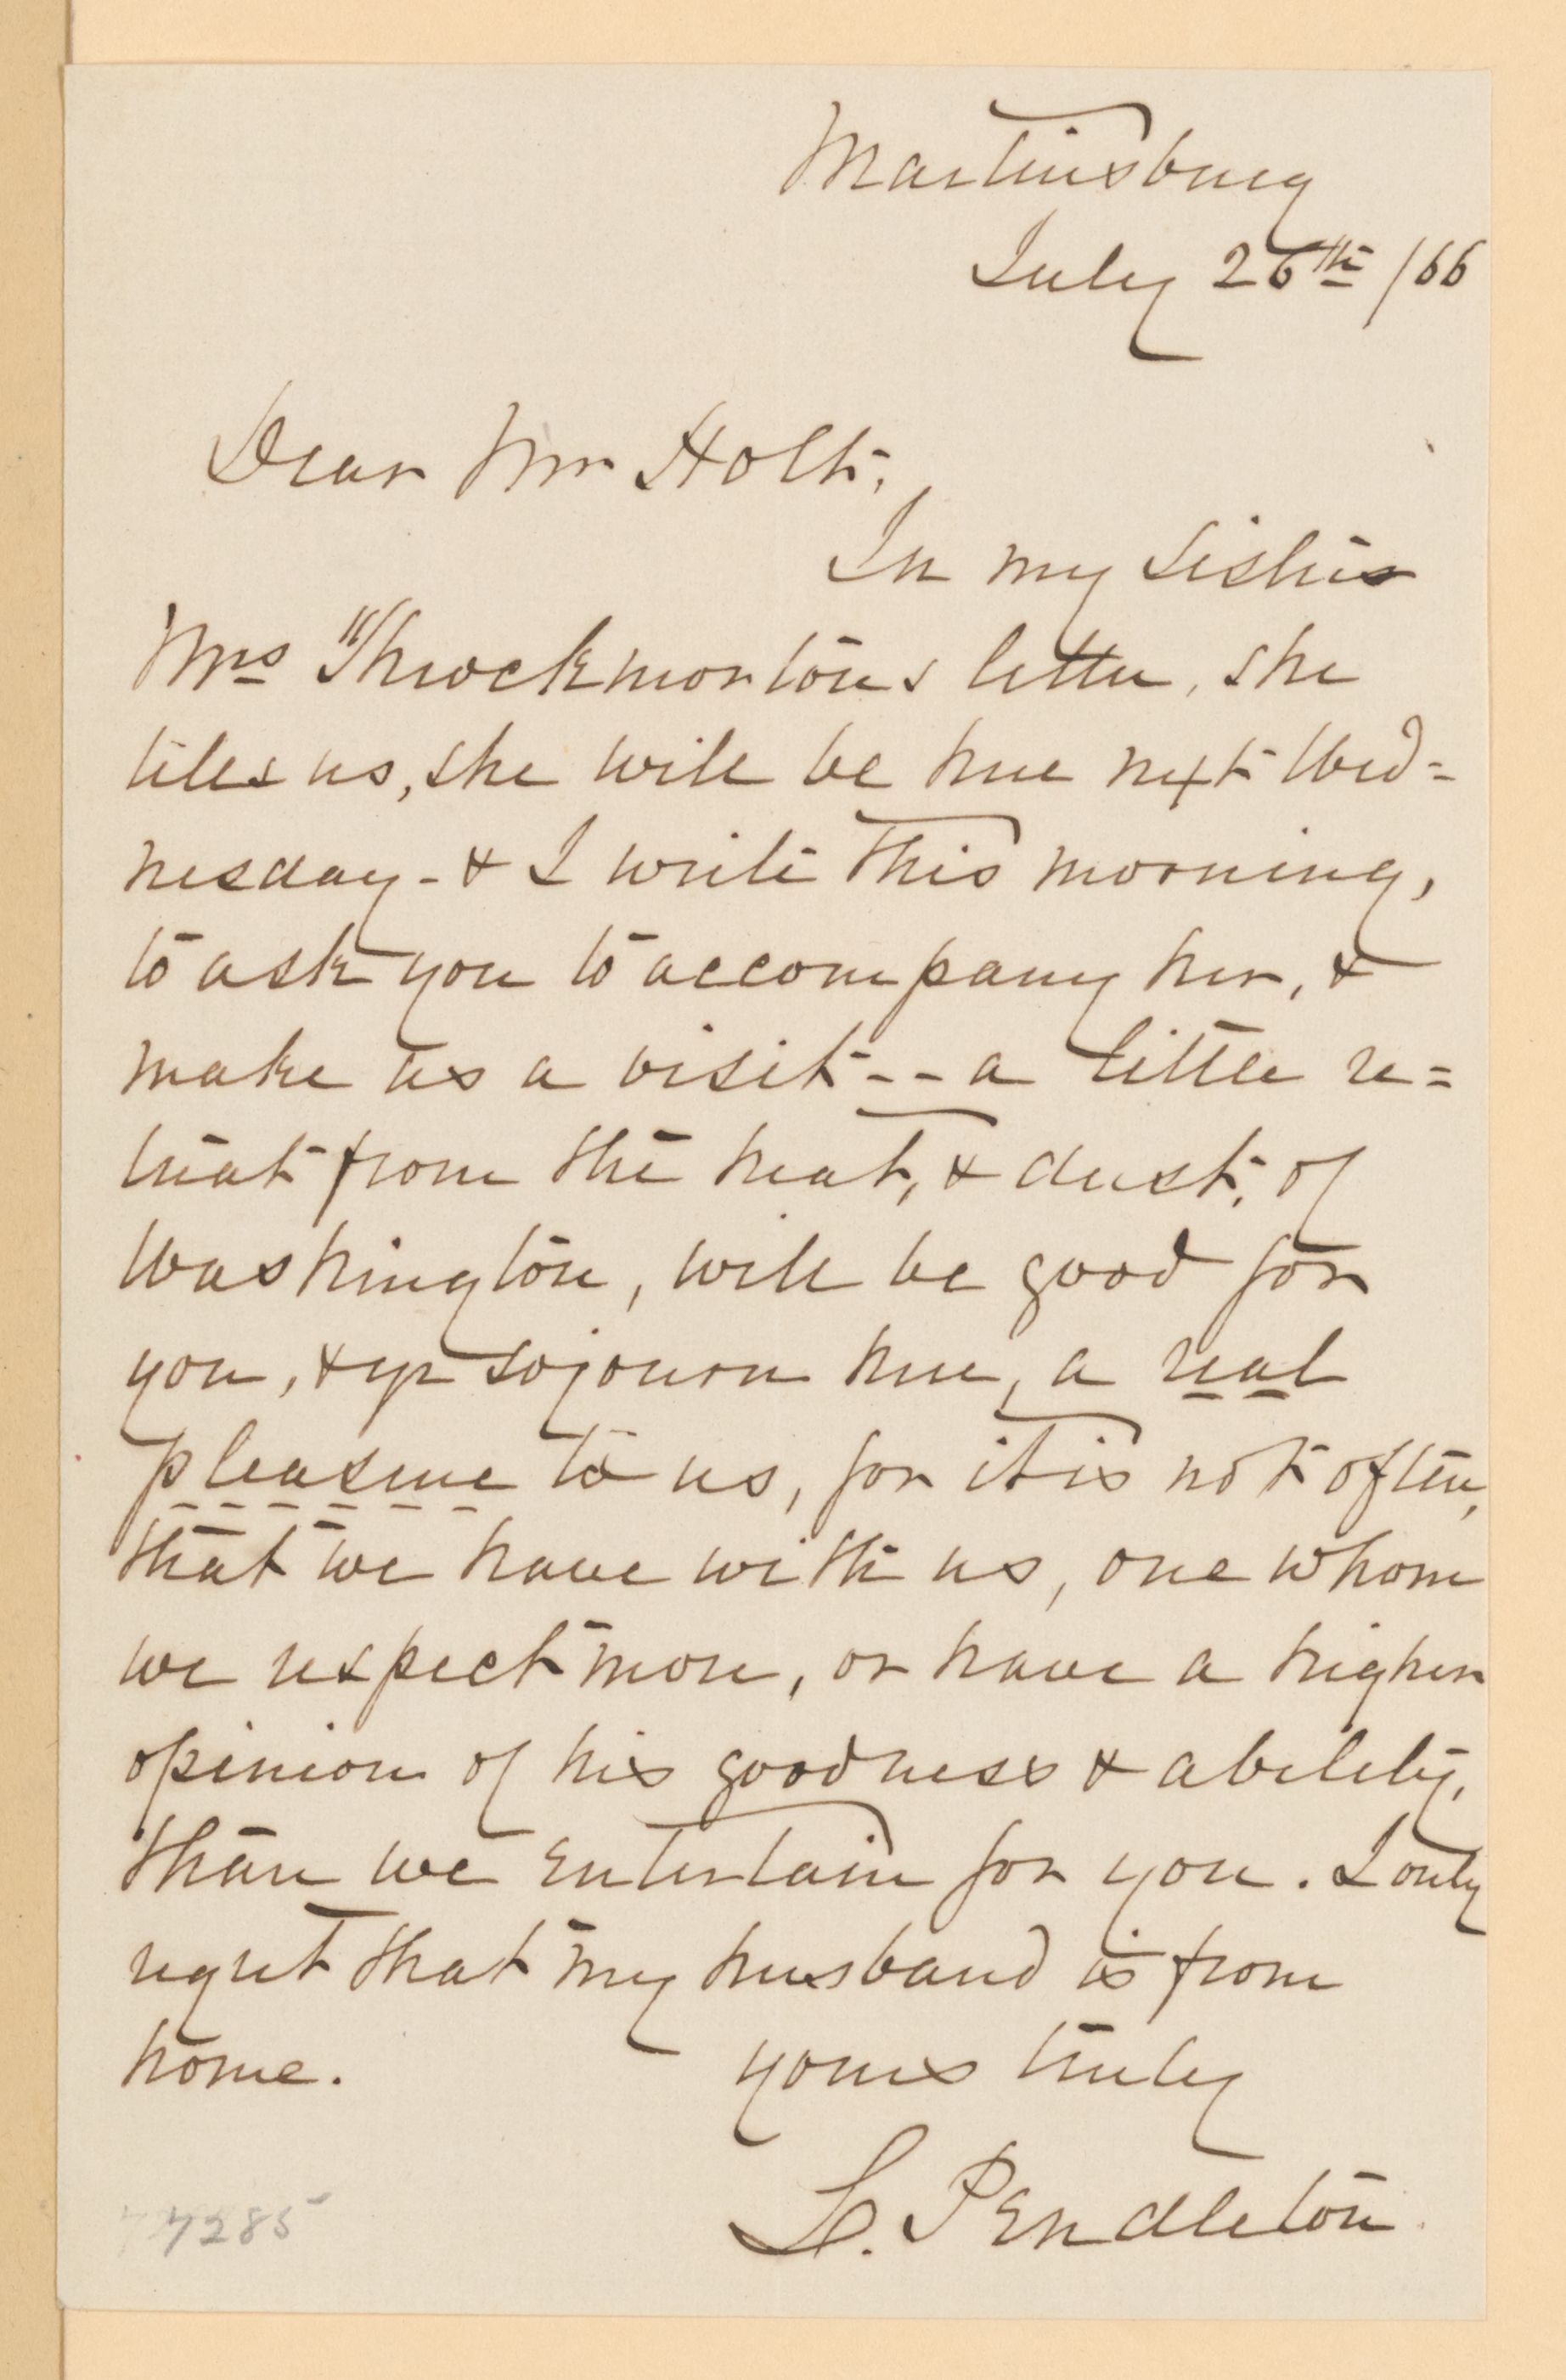 Martinsburg
July 26th /66
Dear Mr Holt,
In my sisters
Mrs Throckmortons letter, she
tells us, she will be here next Wed=
nesday - & I write this morning,
to ask you to accompany her, &
make us a visit -- a little re=
treat from the heat, & dust, of
Washington, will be good for
you, & yr sojourn here, a real
pleasure to us, for it is not often,
that we have with us, one whom
we respect more, or have a higher
opinion of his goodness & ability,
than we entertain for you. I only
regret that my husband is from
home.
yours truly
L. Pendleton.
7285